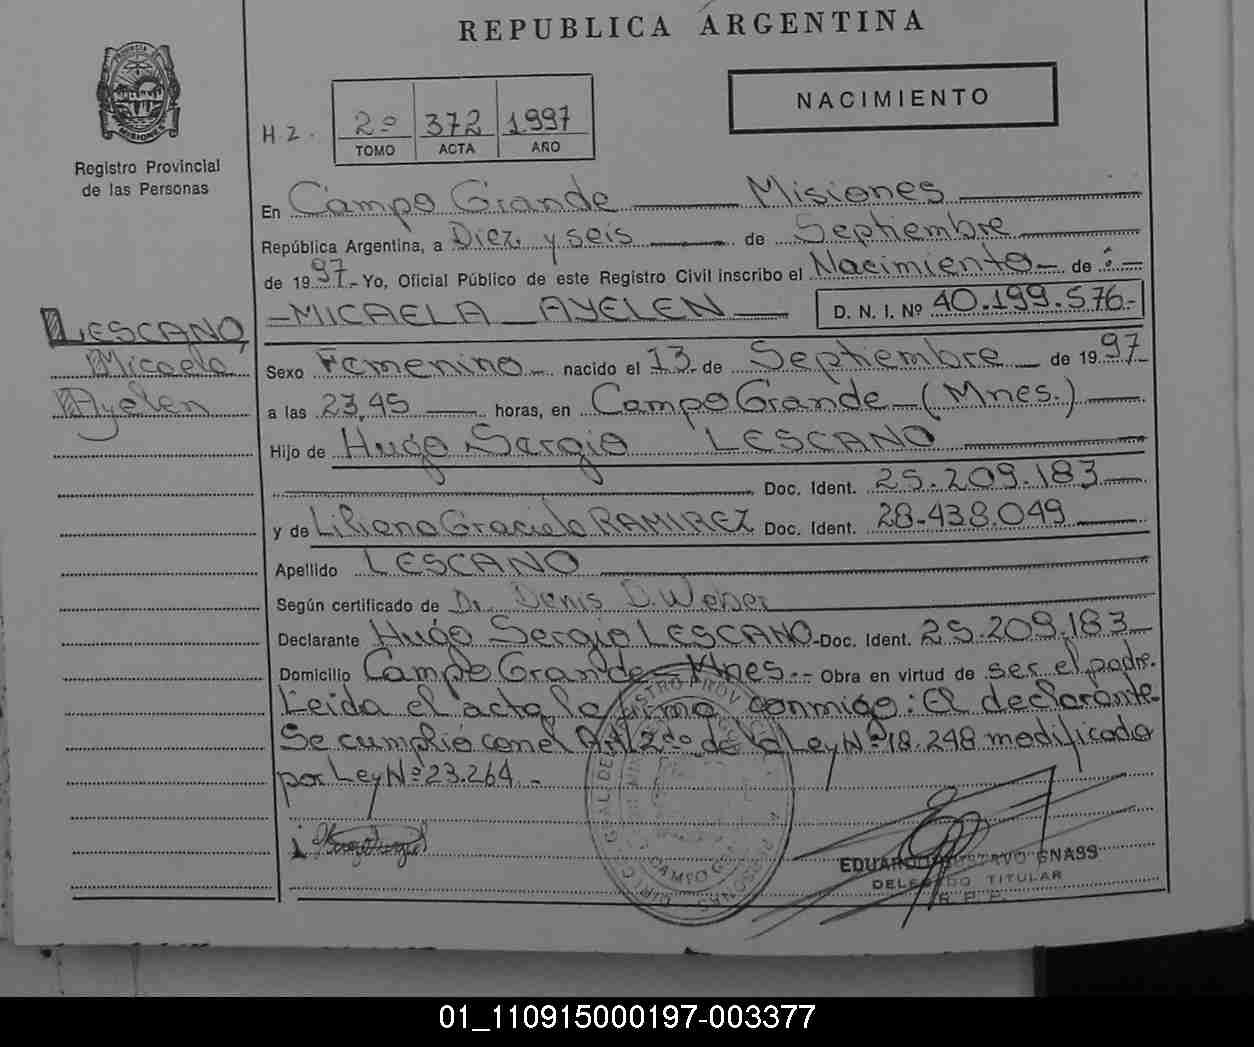 REPUBLICA ARGENTINA
PROVINCIA DE
MISIONES
Registro Provincial
de las Personas
H Z.
2º 372 1997
TOMO ACTA AÑO
NACIMIENTO
En Campo Grande Misiones
República Argentina, a Diez y seis de Septiembre
de 1997.- Yo, Oficial Público de este Registro Civil inscribo el Nacimiento de :
MICAELA AYELEN D. N. I. Nº 40.199.576.-
LESCANO,
Micaela
Ayelen
Sexo Femenino nacido el 13 de Septiembre de 1997
a las 23,45 horas, en Campo Grande (Mnes.)
Hijo de Hugo Sergio LESCANO
Doc. Ident. 25.209.183
y de Liliana Graciela RAMIREZ Doc. Ident. 28.438.049
Apellido LESCANO
Según certificado de Dr. Denis D. Weber
Declarante Hugo Sergio LESCANO Doc. Ident. 25.209.183
Domicilio Campo Grande Mnes.- Obra en virtud de ser el padre.
Leida el acta, la firma conmigo: El declarante.
Se cumplió con el Art 2do de la Ley Nº 18.248 modificado
por Ley Nº 23.264.-
EDUARDO GUSTAVO GNASS
DELEGADO TITULAR
R. P. P.
CAMPO
01_110915000197-003377